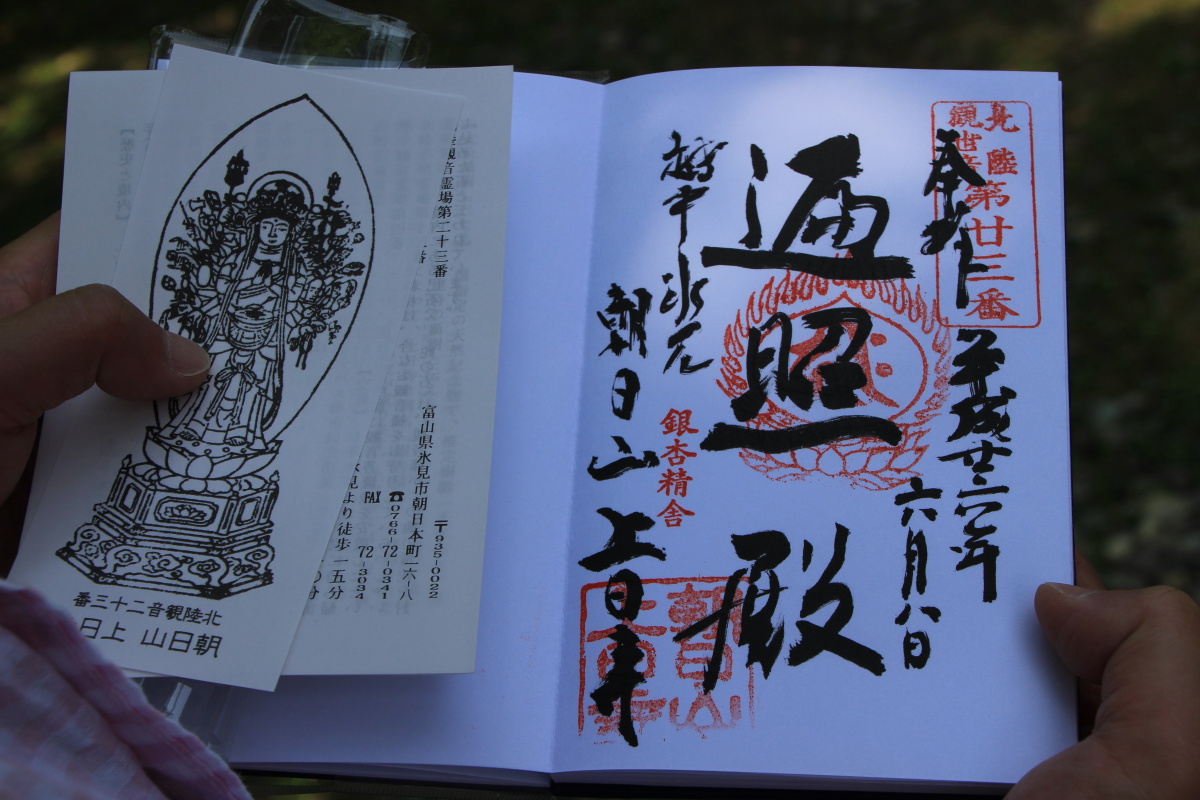 北陸
観世音
第廿三番
奉拝
平成廿六年
六月八日
遍照殿
越中氷見
銀杏精舎
朝日山上日寺
観音霊場第二十三番
〒935-0022
富山県氷見市朝日本町一六-八
☎0766-72-0341
FAX 72-3034
氷見より徒歩一五分
北陸観音二十三番
朝日山上日